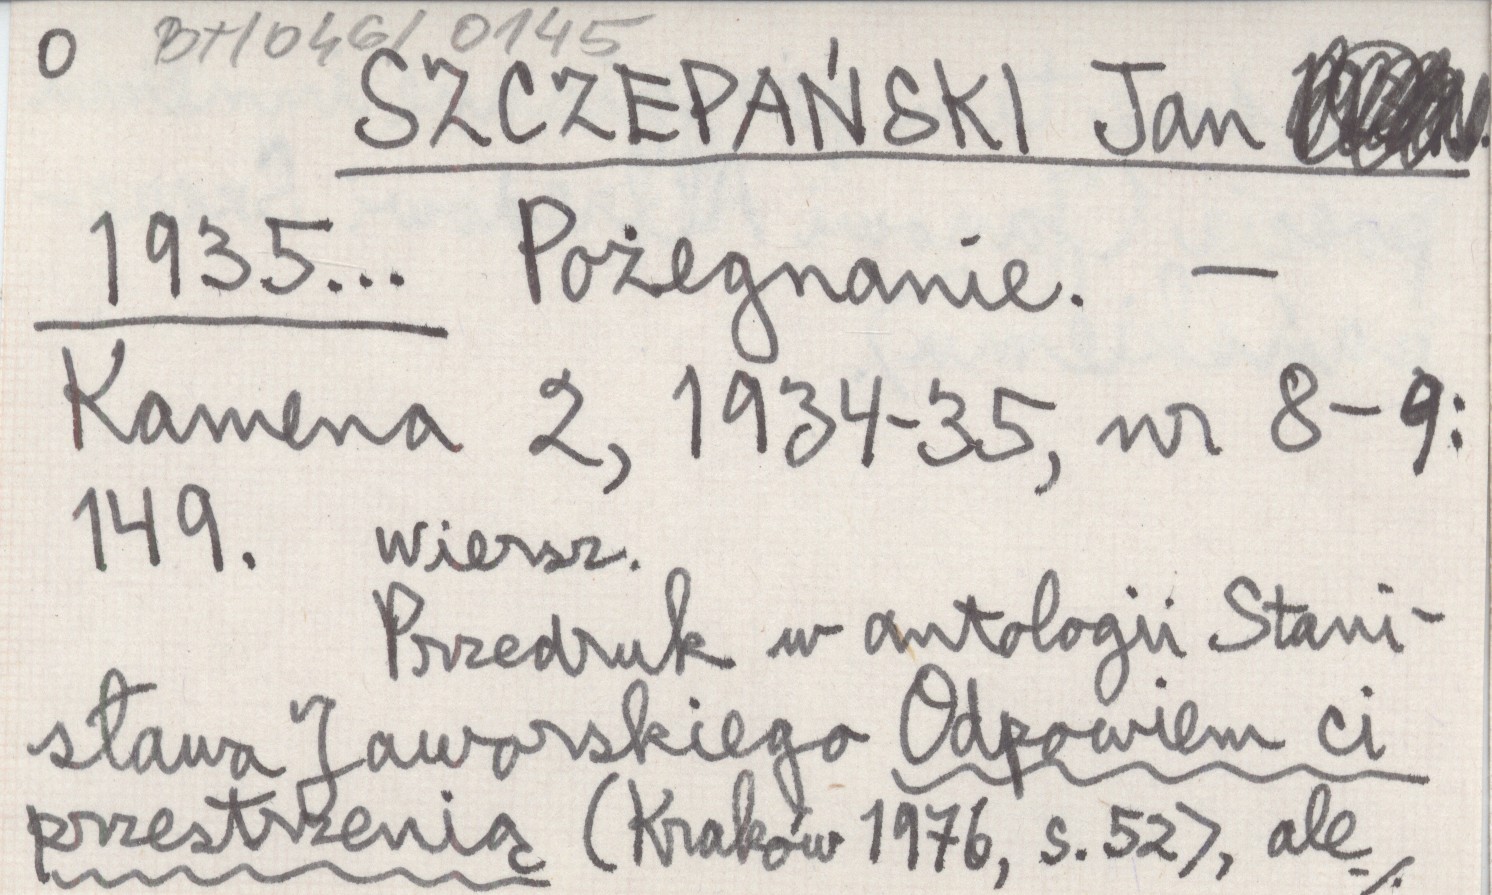 O BH/046/0145
SZCZEPAŃSKI Jan
1935... Pożegnanie. —
Kamena 2, 1934-35, nr 8-9:
149. wiersz.
Przedruk w antologii Stani-
sława Jaworskiego Odpowiem ci
przestrzenią (Kraków 1976, s. 52), ale